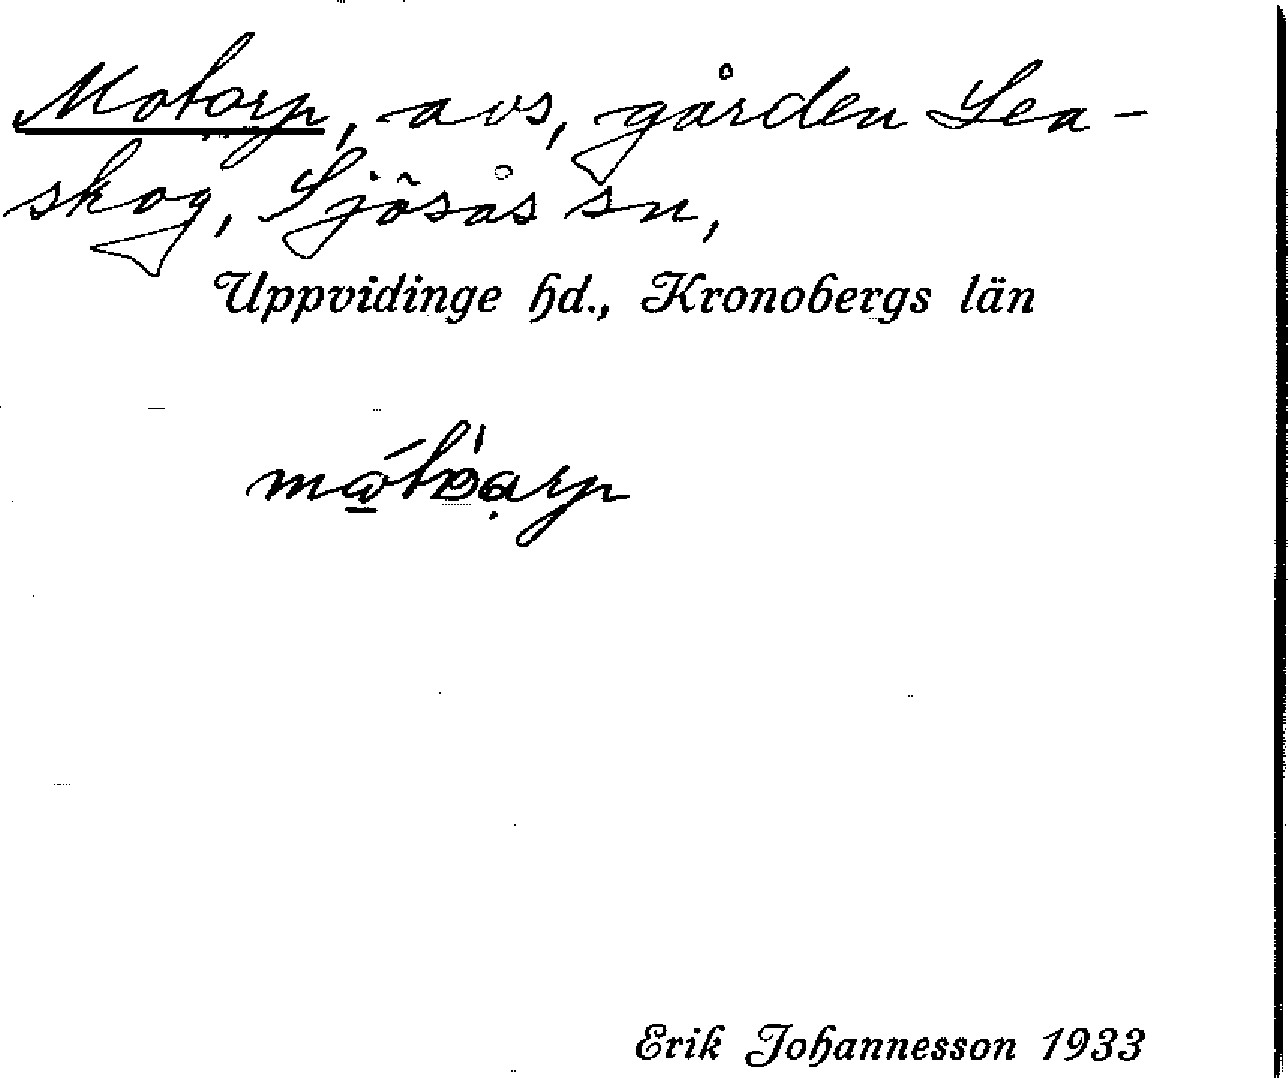 Motorp, avs, gården Lea-
skog, Sjösås sn,
Uppvidinge hd., Kronobergs län
Erik Johannesson 1933